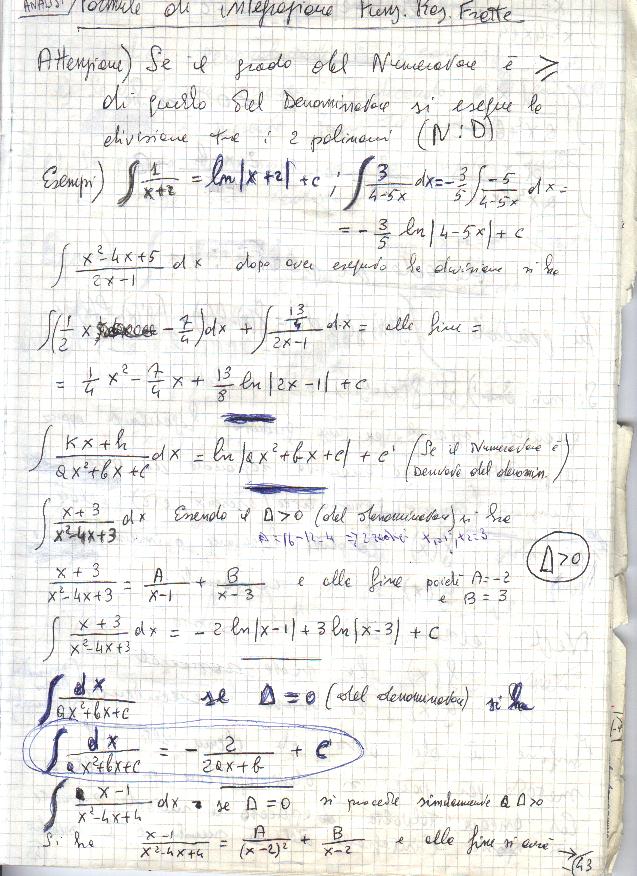 ANALISI / Formule di integrazione Funz. Raz. Fratte
Attenzione) Se il grado del Numeratore è ≥
di quello del Denominatore si esegue la
divisione tra i 2 polinomi (N:D)
Esempi) ∫ 1/(x+2) = ln|x+2| + c ; ∫ 3/(4-5x) dx = -3/5 ∫ -5/(4-5x) dx =
= -3/5 ln|4-5x| + c
∫ (x²-4x+5)/(2x-1) dx dopo aver eseguito la divisione si ha
∫(1/2 x - 7/4)dx + ∫ (13/4)/(2x-1) dx = alla fine =
= 1/4 x² - 7/4 x + 13/8 ln|2x-1| + c
∫ (Kx+h)/(ax²+bx+c) dx = ln|ax²+bx+c| + c' (Se il Numeratore è Derivata del denomin.)
∫ (x+3)/(x²-4x+3) dx Essendo il Δ>0 (del denominatore) si ha
Δ=16-12=4
(x+3)/(x²-4x+3) = A/(x-1) + B/(x-3) e alla fine poiché A=-2 e B=3
Δ>0
∫ (x+3)/(x²-4x+3) dx = -2 ln|x-1| + 3 ln|x-3| + c
∫ dx/(ax²+bx+c) se Δ=0 (del denominatore) si ha
∫ dx/(ax²+bx+c) = - 2/(2ax+b) + c
∫ (x-1)/(x²-4x+4) dx - se Δ=0 si procede similmente a Δ>0
Si ha (x-1)/(x²-4x+4) = A/(x-2)² + B/(x-2) e alla fine si avrà →